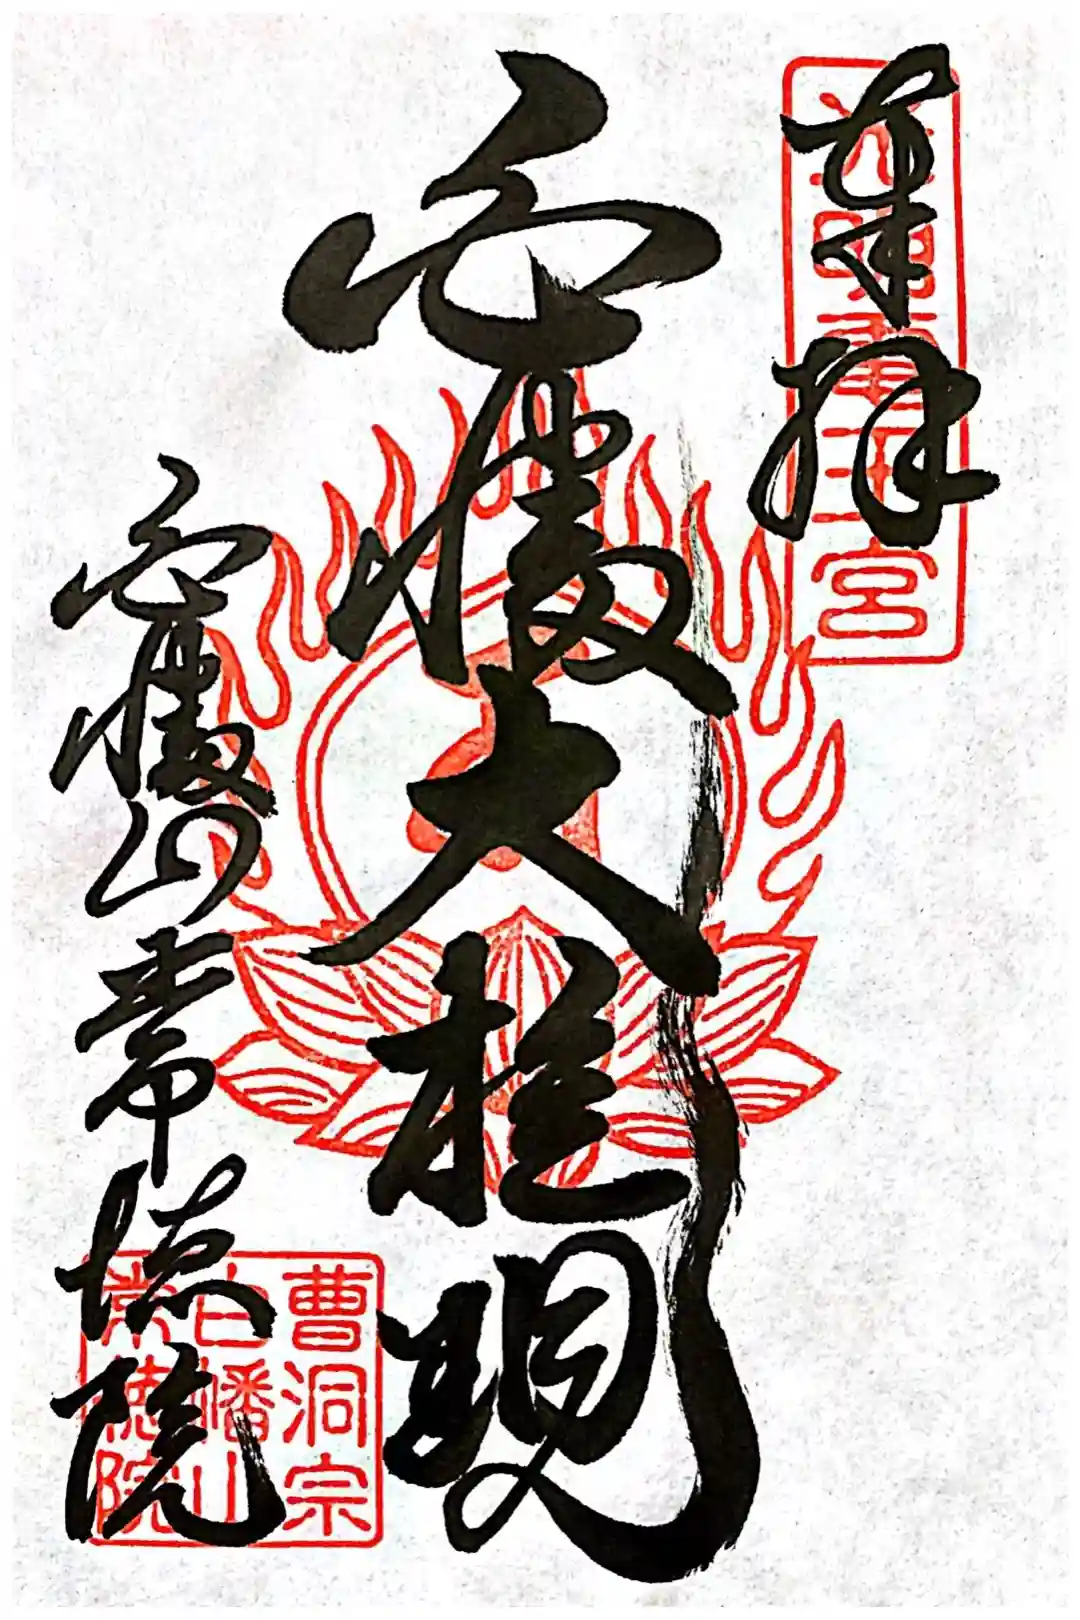 奉拝
白幡大権現
白幡山常徳院
曹洞宗
白幡山
常徳院